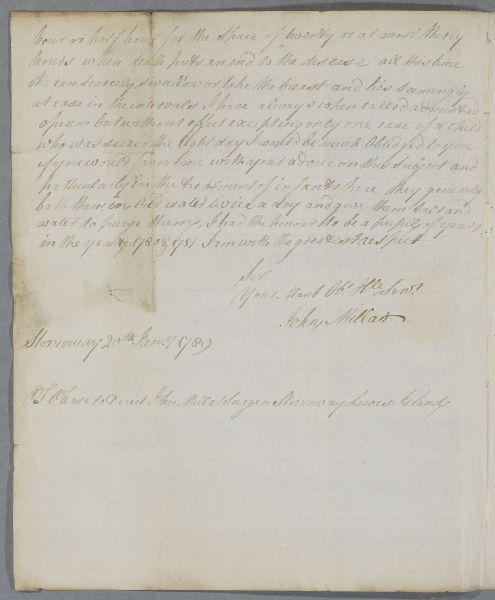 hour or half hour for the space of twenty or at most thirty
hours when death puts an end to the disease all this time
it can scarcely swallow or take the breast and lies seemingly
at ease in the intervals I have always when called administred
opium but without effect excepting only one case of a child
who was seized the eight day I would be much Oblidged to you
if you would favour me with your advice on this Subject and
particularly in the treatment of infants here they generaly
bath them in Cold water twice a day and give them Salt and
water to purge them, I had the honour to be a pupil of yours
in the years 1780 & 1781 I am with the greatest respect
Sir
Your Most Obt. Hle Servt.
John Millar
Stornoway 20th Jany 1789
PS Please to Direct John Millar Surgeon Stornoway Lewis Island